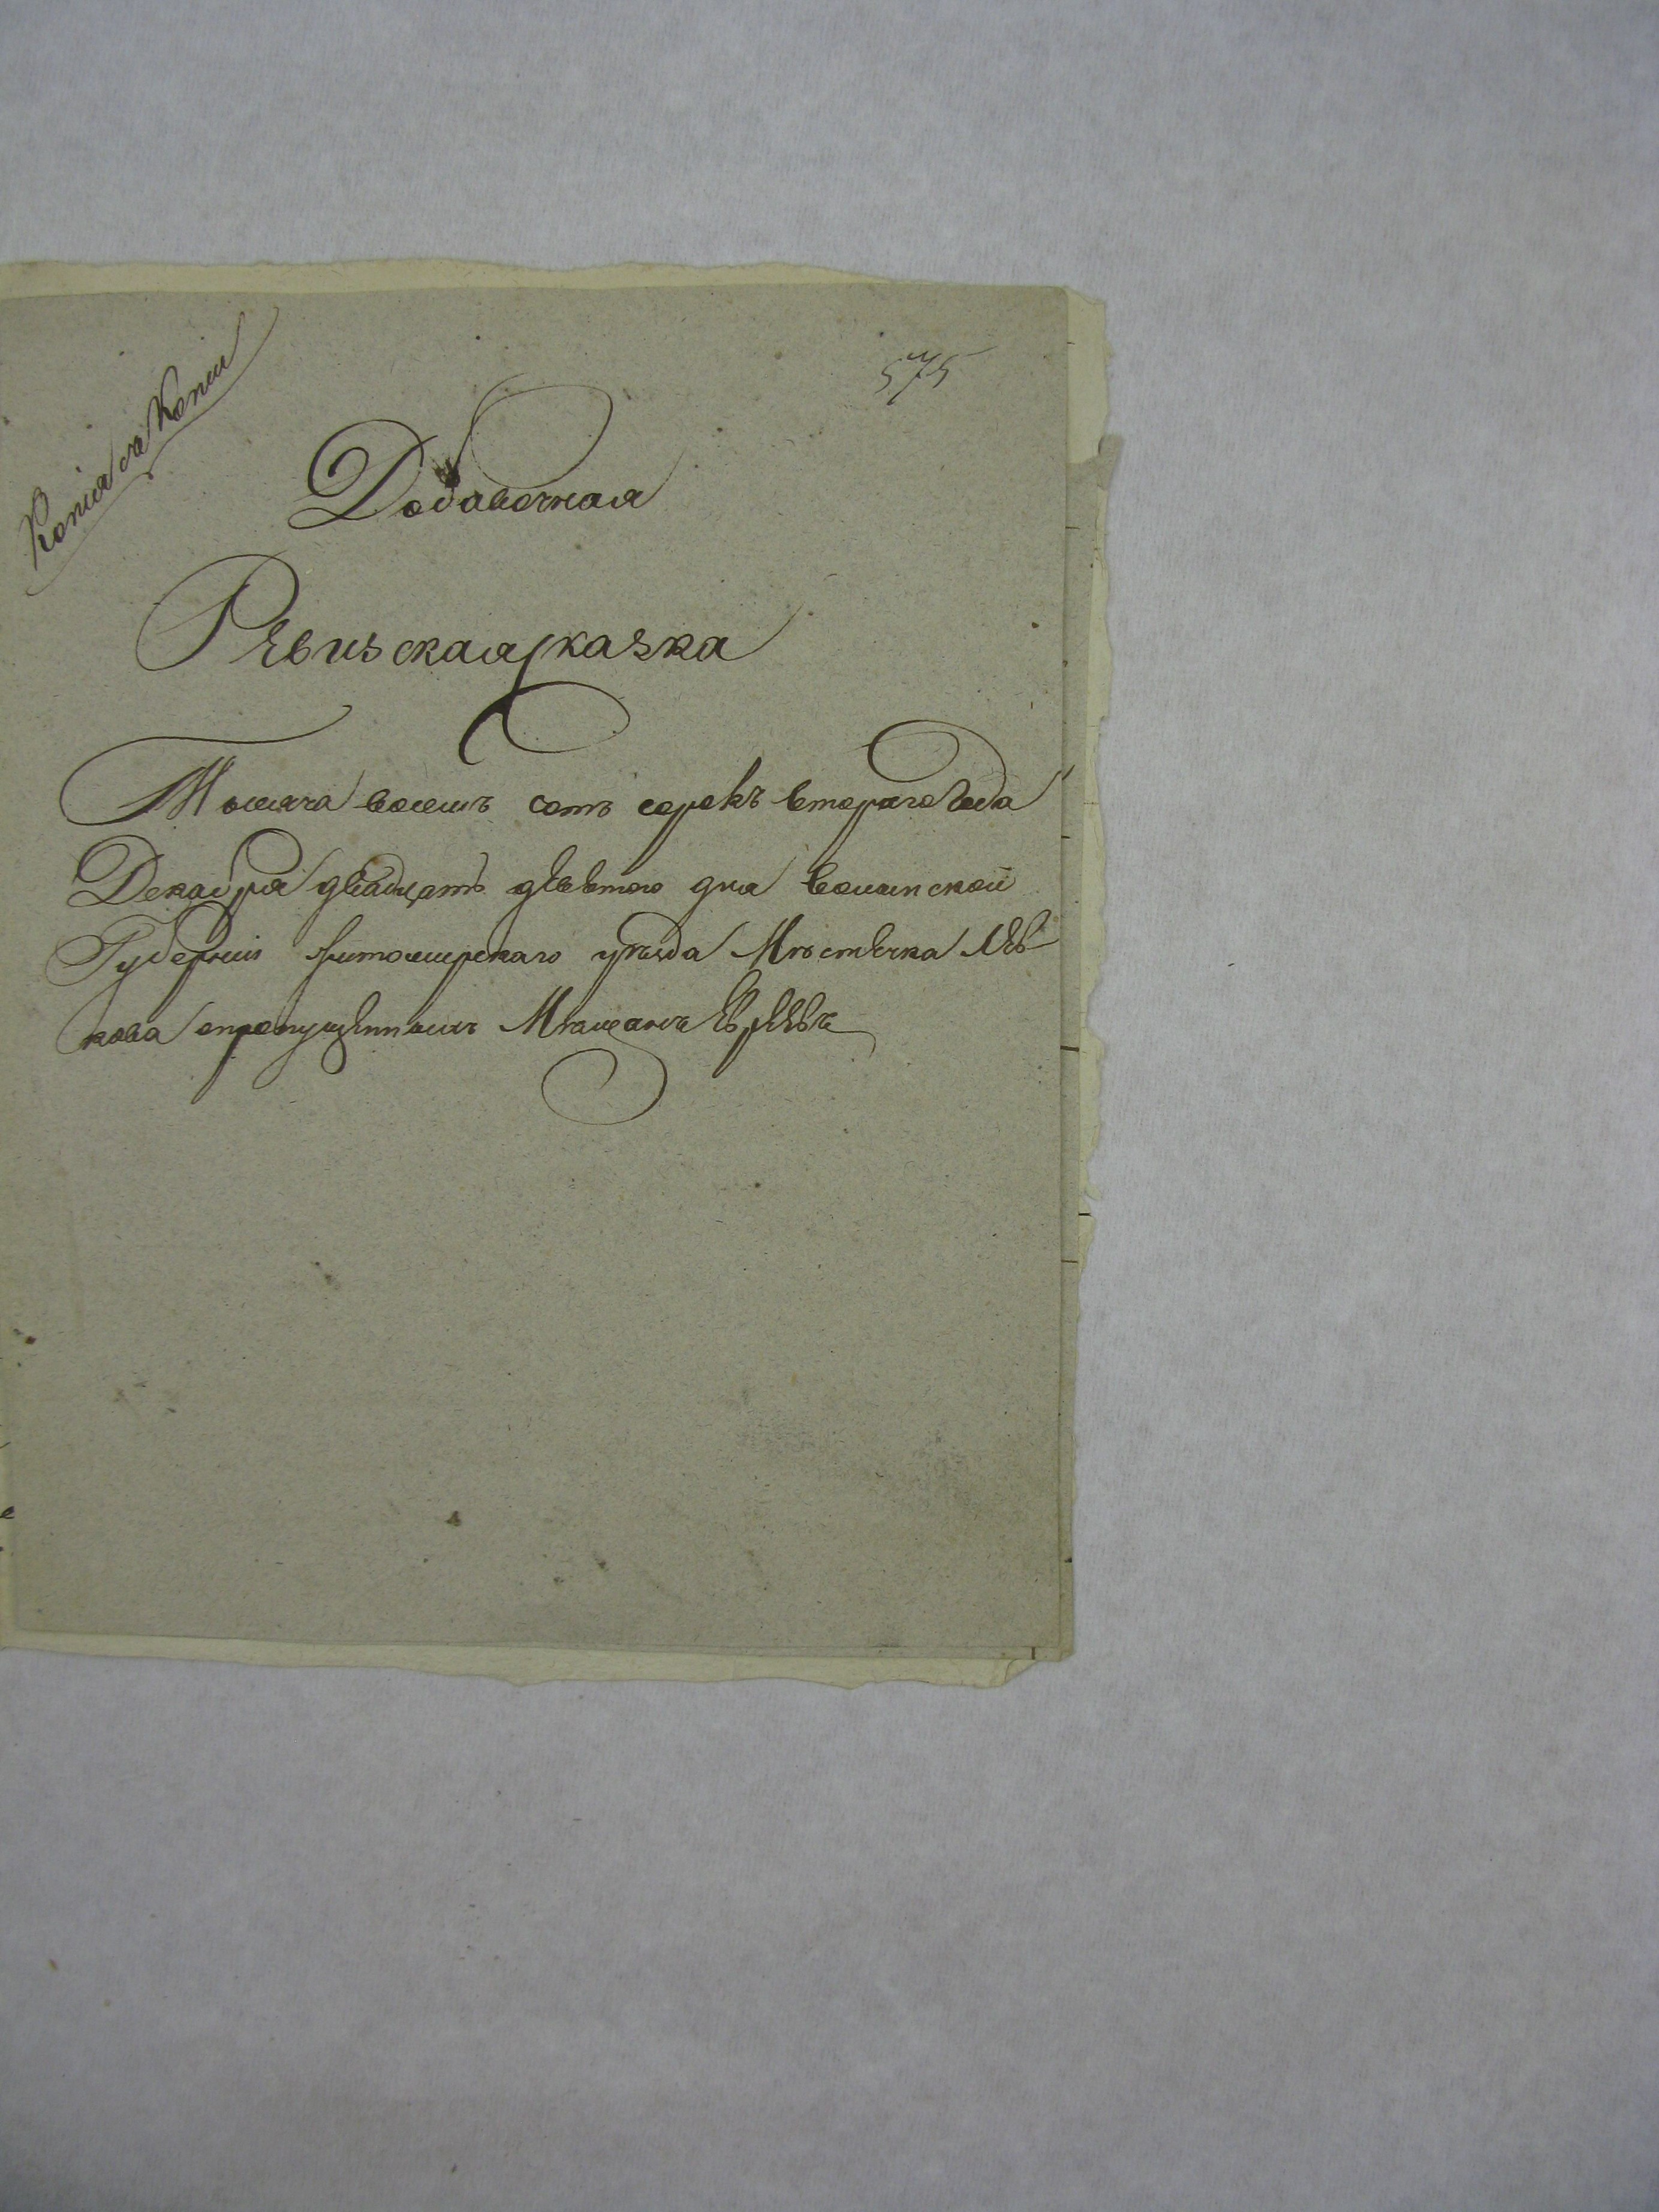 Копія съ Копіи
575
Добавочная
Ревизская сказка
Тысяча восемь сотъ сорокъ втораго Года
Декабря двадцать девятого дня Волынской
Губерніи Житомирскаго уѣзда Мѣстечка Лев
кова опропущенныхъ Мѣщанъ Евреевъ